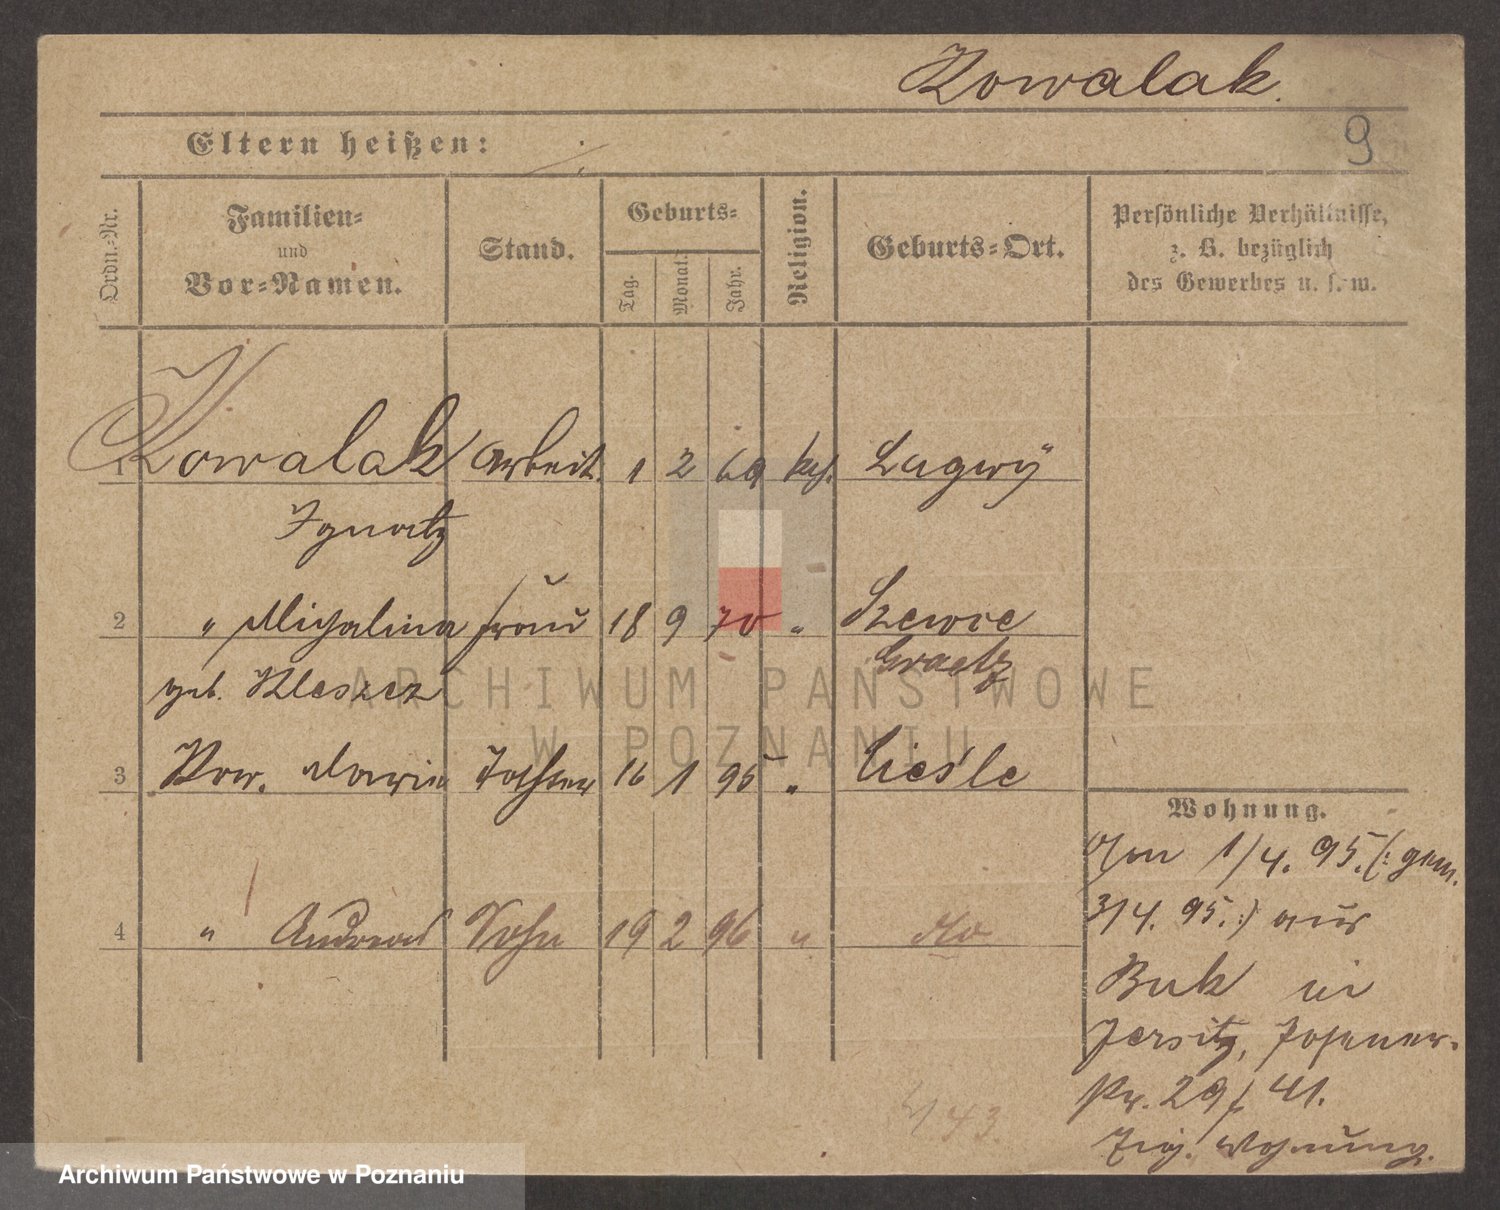 Kowalak.
9
Eltern heißen:
Ordn.-Nr.
Familien-
und
Vor-Namen.
Stand.
Geburts-
Tag.
Monat.
Jahr.
Religion.
Geburts-Ort.
Persönliche Verhältnisse,
z. B. bezüglich
des Gewerbes u. s. w.
1 Kowalak Arbeit. 1 2 69 kth. Lagwÿ
Ignatz
2 " Michalina Frau 18 9 70 " Szewce
Graetz
geb. Kleszcz
3 Kow. Marie Tochter 16 1 95 " Cieśle
4 " Andreas Sohn 19 2 96 " do
Wohnung.
Von 1/4. 95. (: gem.
3/4. 95. :) aus
Buk in
Jersitz, Posener-
str. 29/41.
Eig. Wohnung.
43.
ARCHIWUM PAŃSTWOWE
W POZNANIU
Archiwum Państwowe w Poznaniu